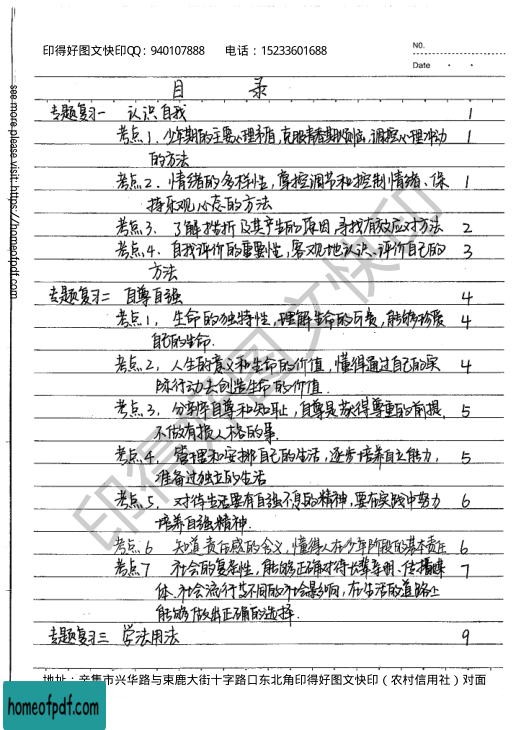 印得好图文快印QQ：940107888 电话：15233601688
NO.
Date
目 录
专题复习一 认识自我 1
考点1、少年期的主要心理矛盾，克服青春期烦恼，调控心理冲动 1
的方法
考点2．情绪的多样性，掌控调节和控制情绪、保 1
持乐观心态的方法
考点3．了解挫折及其产生的原因，寻找有效应对方法 2
考点4．自我评价的重要性，客观地认识、评价自己的 3
方法
专题复习二 自尊自强 4
考点1，生命的独特性，理解生命的可贵，能够珍爱 4
自己的生命．
考点2，人生的意义和生命的价值，懂得通过自己的实 4
际行动去创造生命的价值．
考点3，分辨自尊和知耻，自尊是获得尊重的前提， 5
不做有损人格的事．
考点4，管理和安排自己的生活，逐步培养自立能力， 5
准备过独立的生活
考点5，对待生活要有自强不息的精神，要在实践中努力 6
培养自强精神．
考点6 知道责任感的含义，懂得人在少年阶段的基本责任 6
考点7 社会的复杂性，能够正确对待长辈亲朋、传播媒 7
体、社会流行等不同的社会影响，在生活的道路上
能够做出正确的选择．
专题复习三 学法用法 9
地址：辛集市兴华路与束鹿大街十字路口东北角印得好图文快印（农村信用社）对面
see more please visit: https://homeofpdf.com
印得好图文快印
homeofpdf.com